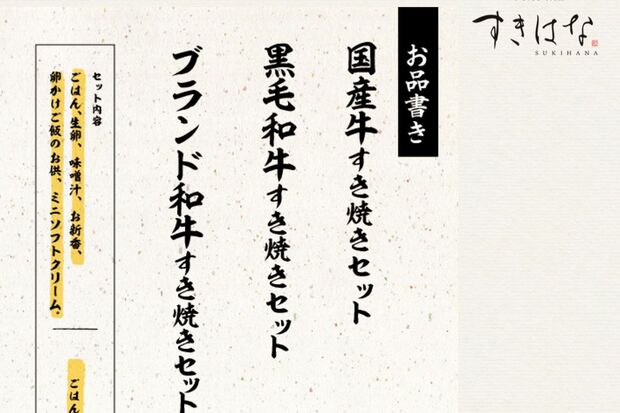 すきはな
SUKIHANA
お品書き
国産牛すき焼きセット
黒毛和牛すき焼きセット
ブランド和牛すき焼きセット
セット内容
ごはん、生卵、味噌汁、お新香、
卵かけご飯のお供、ミニソフトクリーム、
ごはん